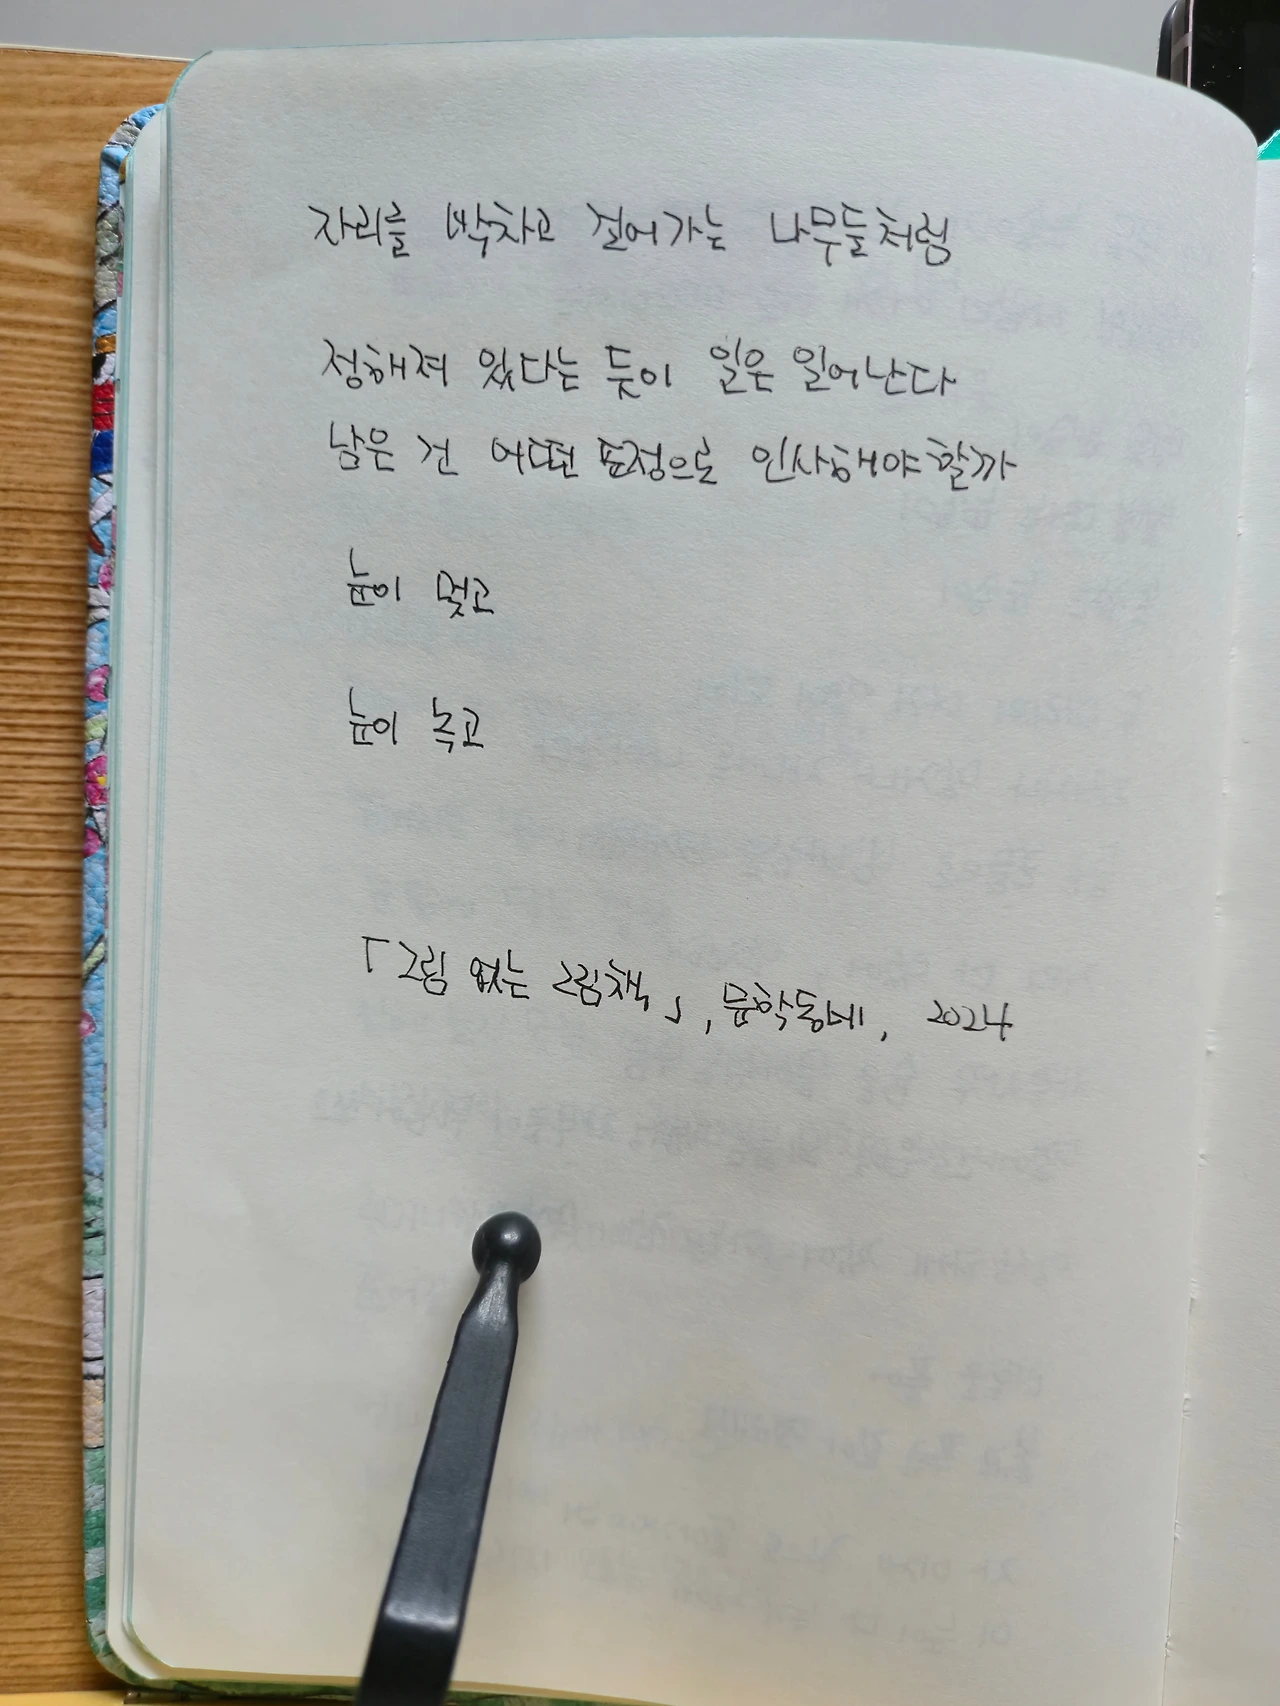 자리를 박차고 걸어가는 나무들처럼
정해져 있다는 듯이 일은 일어난다
남은 건 어떤 표정으로 인사해야 할까
눈이 멎고
눈이 녹고
「그림 없는 그림책」, 문학동네, 2024